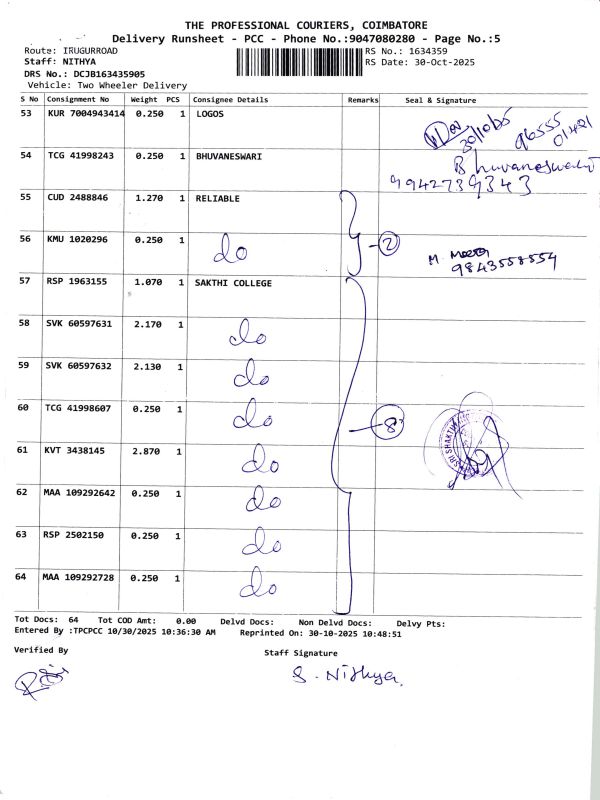 THE PROFESSIONAL COURIERS, COIMBATORE
Delivery Runsheet - PCC - Phone No.:9047080280 - Page No.:5
Route: IRUGURROAD RS No.: 1634359
Staff: NITHYA RS Date: 30-Oct-2025
DRS No.: DCJB163435905
Vehicle: Two Wheeler Delivery
S No Consignment No Weight PCS Consignee Details Remarks Seal & Signature
53 KUR 7004943414 0.250 1 LOGOS 30/10/25 96555 01421
54 TCG 41998243 0.250 1 BHUVANESWARI Bhuvaneswari
9942739343
55 CUD 2488846 1.270 1 RELIABLE
56 KMU 1020296 0.250 1 do 2 M
9843558554
57 RSP 1963155 1.070 1 SAKTHI COLLEGE
58 SVK 60597631 2.170 1 do
59 SVK 60597632 2.130 1 do
60 TCG 41998607 0.250 1 do 8 SRI SHAKTHI
61 KVT 3438145 2.870 1 do
62 MAA 109292642 0.250 1 do
63 RSP 2502150 0.250 1 do
64 MAA 109292728 0.250 1 do
Tot Docs: 64 Tot COD Amt: 0.00 Delvd Docs: Non Delvd Docs: Delvy Pts:
Entered By :TPCPCC 10/30/2025 10:36:30 AM Reprinted On: 30-10-2025 10:48:51
Verified By Staff Signature
S. Nithya.